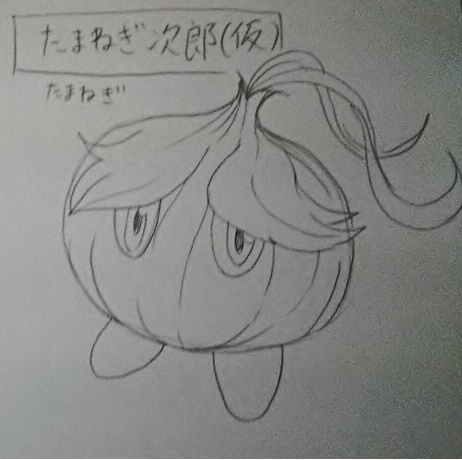 たまねぎ次郎(仮)
たまねぎ